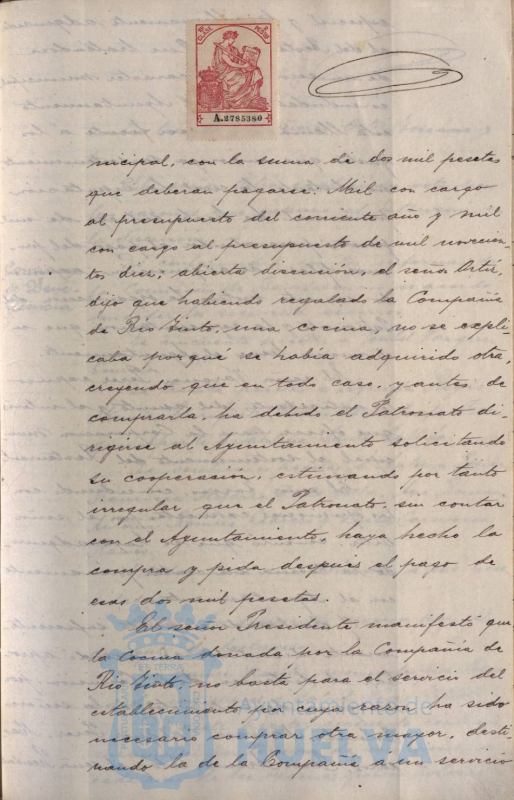 A.2785380
nicipal, con la suma de dos mil pesetas
que deberan pagarse: Mil con cargo
al presupuesto del corriente año y mil
con cargo al presupuesto de mil novecien-
tos diez; abierta discusión, el señor Ortiz,
dijo que habiendo regalado la Compañia
de Rio Tinto, una cocina, no se expli-
caba porqué se había adquirido otra,
creyendo que en todo caso, y antes de
comprarla, ha debido el Patronato di-
rigirse al Ayuntamiento solicitando
su cooperación, estimando por tanto
irregular que el Patronato, sin contar
con el Ayuntamiento, haya hecho la
compra y pida despues el pago de
esas dos mil pesetas.
El señor Presidente manifestó que
la cocina donada por la Compañia de
Rio Tinto, no basta para el servicio del
establecimiento por cuya razon ha sido
necesario comprar otra mayor, desti-
nando la de la Compañia a un servicio
Ayuntamiento de
HUELVA